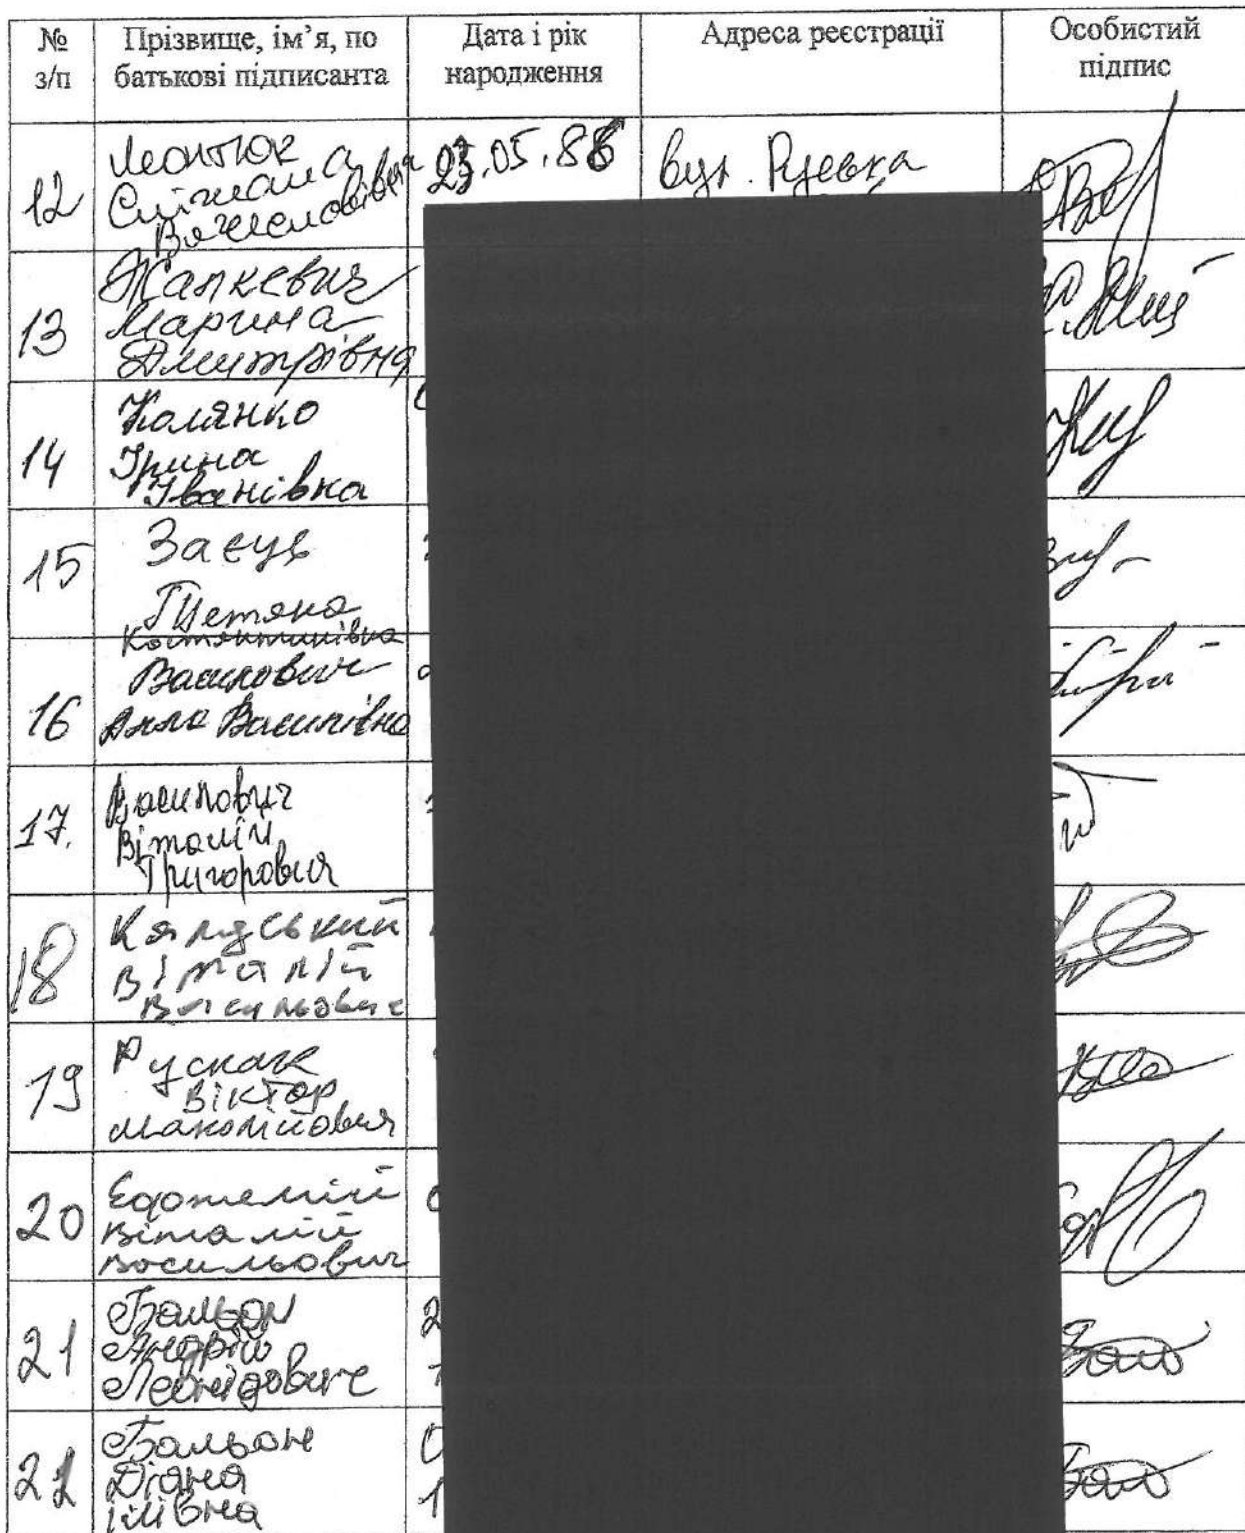 № з/п
Прізвище, ім’я, по батькові підписанта
Дата і рік народження
Адреса реєстрації
Особистий підпис
12
Леонтюк
Світлана
Вячеславівна
23.05.88
вул. Руська
13
Жапкевич
Марина
Дмитрівна
14
Колянко
Ірина
Іванівна
15
Заєць
Тетяна
Костянтинівна
16
Василович
Алла Василівна
17.
Василович
Віталій
Григорович
18
Віталій
Васильович
19
Руснак
Віктор
20
Віталій
Васильович
21
Бальон
Андрій
Леонідович
22
Бальон
Діана
Іллівна